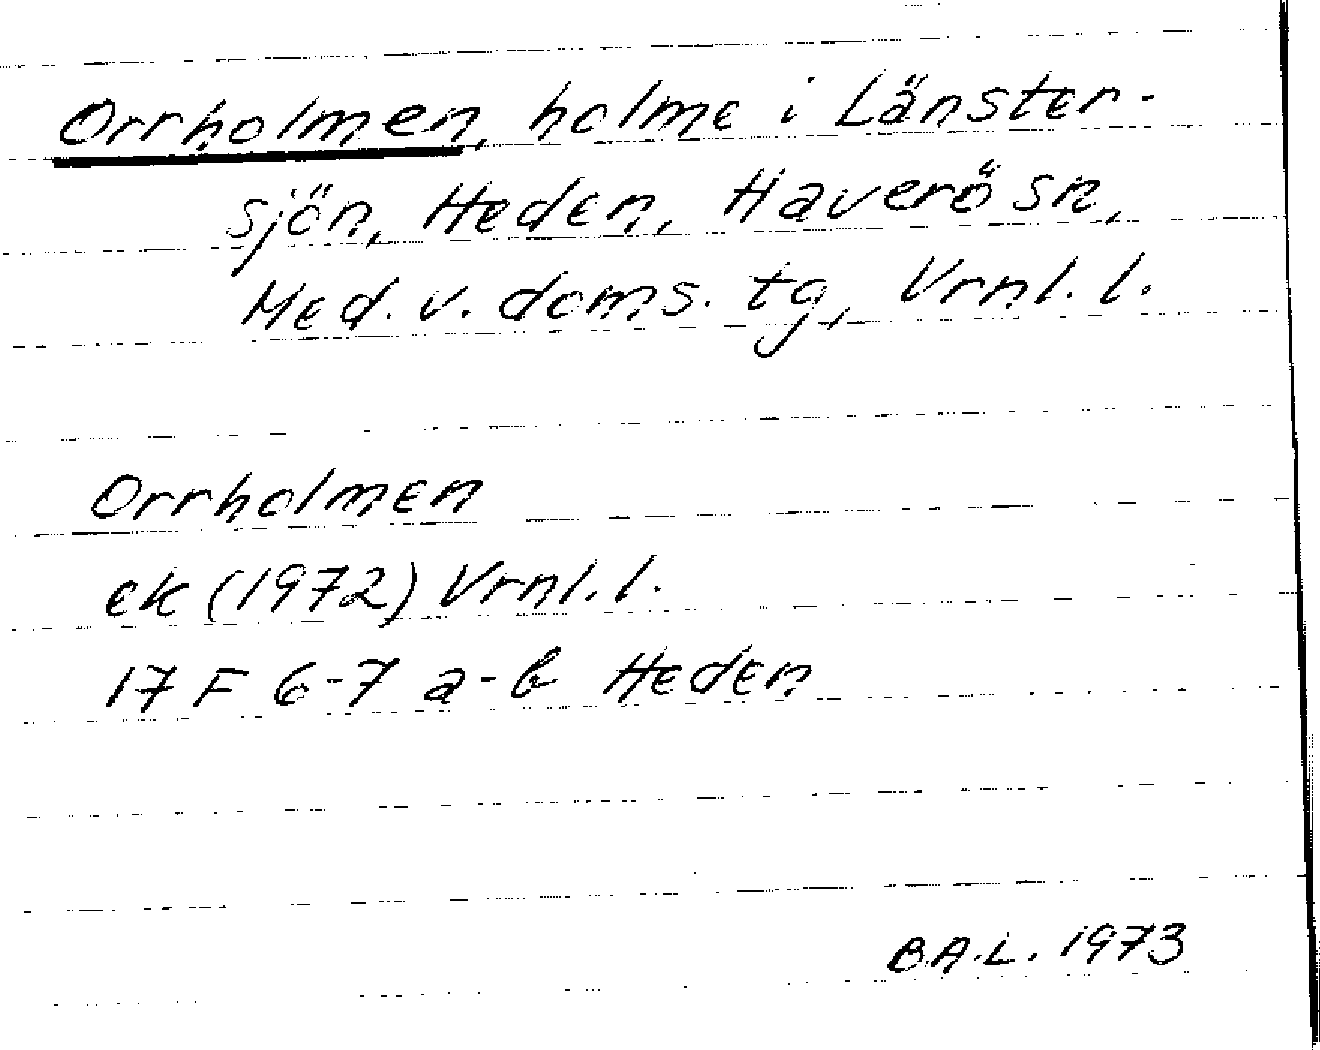 Orrholmen, holme i Länster-
sjön, Heden, Haverö sn,
Med. v. doms. tg, Vrnl. l.
Orrholmen
ek (1972) Vrnl. l.
17 F 6-7 a-b Heden
B.A.L. 1973